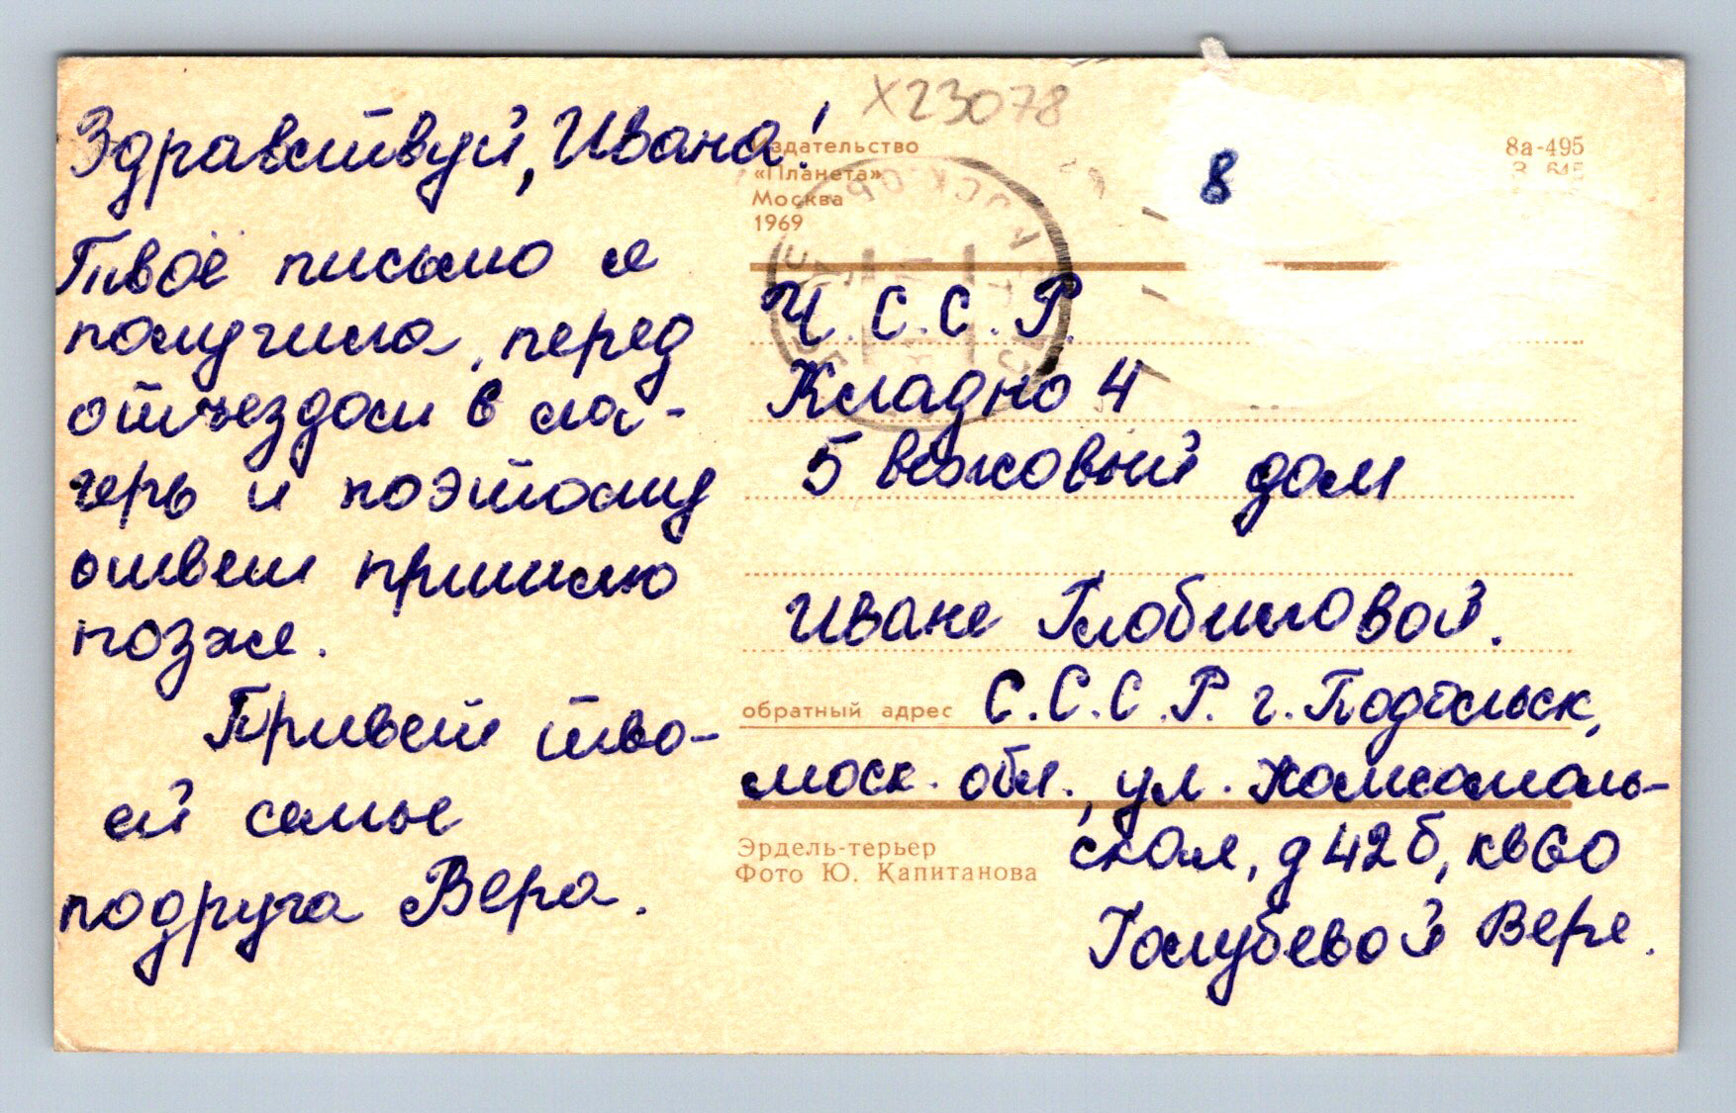 Здравствуй, Ивана!
Твоё письмо я
получила, перед
отъездом в ла-
герь и поэтому
ответ пришлю
позже.
Привет тво-
ей семье
подруга Вера.
X23078
Издательство
«Планета»
Москва
1969
8
8а-495
Ч.С.С.Р.
Кладно 4
5 вежовый дом
Иване Глобиловой.
обратный адрес С.С.С.Р. г. Подольск,
моск. обл., ул. Комсомоль-
ская, д 42б, кв60
Голубевой Вере.
Эрдель-терьер
Фото Ю. Капитанова